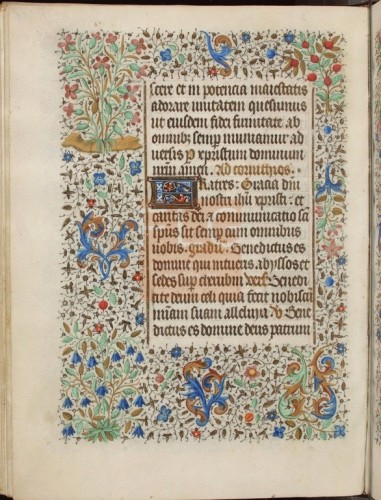 scere et in potencia maiestatis
adorare unitatem quesumus
ut eiusdem fidei firmitate ab
omnibz semp muniamur ad
uersis P xpristum dominum
nrm amen. Ad corinthios.
Fratres: Gracia dni
nostri ihu xpristi et
caritas dei et communicatio sa
sp̄us sit semp cum omnibus
uobis. gradle. Benedictus es
domine qui intueris abyssos et
sedes sup cherubim vers. Benedi
cite deum celi quia fecit nobiscū
mīam suam alleluya V Bene
dictus es domine deus patrum